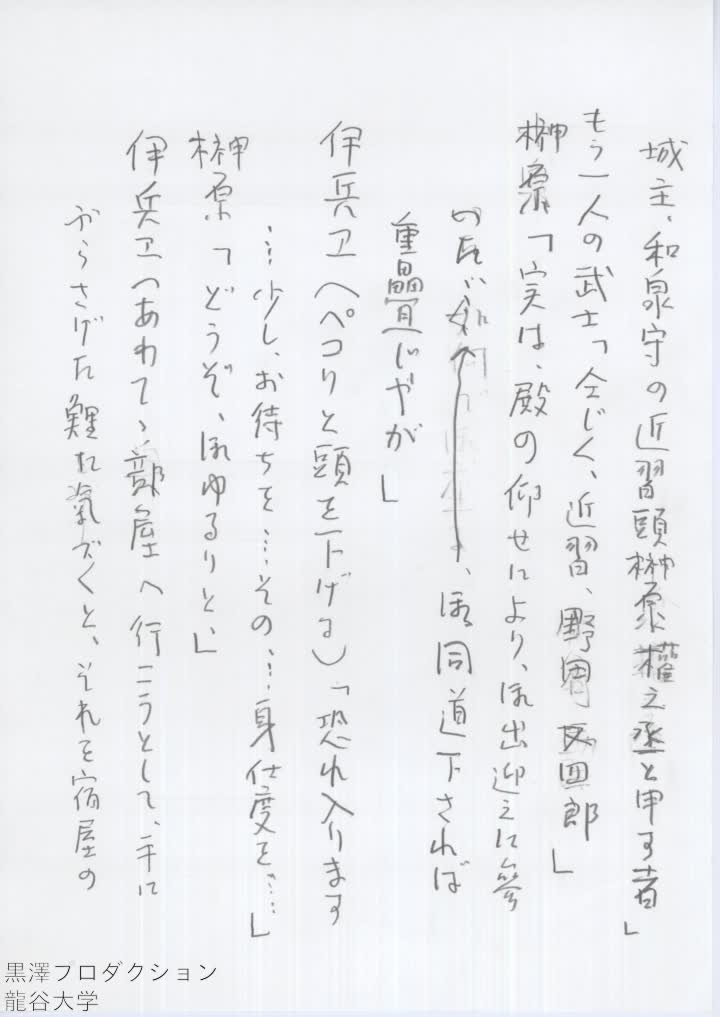 城主、和泉守の近習頭榊原權之丞と申す者」
もう一人の武士「仝じく、近習、野間 四郎」
榊原「実は、殿の仰せにより、御出迎えに參
のだが、御同道下されば
重疊じやが」
伊兵ヱ(ペコリと頭を下げる)「恐れ入ります
…少し、お待ちを…その…身仕度を…」
榊原「どうぞ、御ゆるりと、」
伊兵ヱ、あわてゝ部屋へ行こうとして、手に
ぶらさげた鯉に氣づくと、それを宿屋の
黒澤プロダクション
龍谷大学